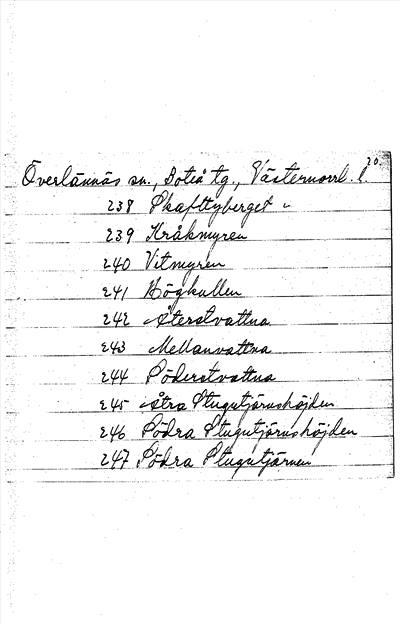 20.
Överlännäs sn., Boteå tg., Västernorrl. l.
238 Skafttyberget "
239 Kråkmyren
240 Vitmyren
241 Högkullen
242 Återstvattna
243 Mellanvattna
244 Söderstvattna
245 Åtra Stugutjärnshöjden
246 Södra Stugutjärnshöjden
247 Södra Stugutjärnen